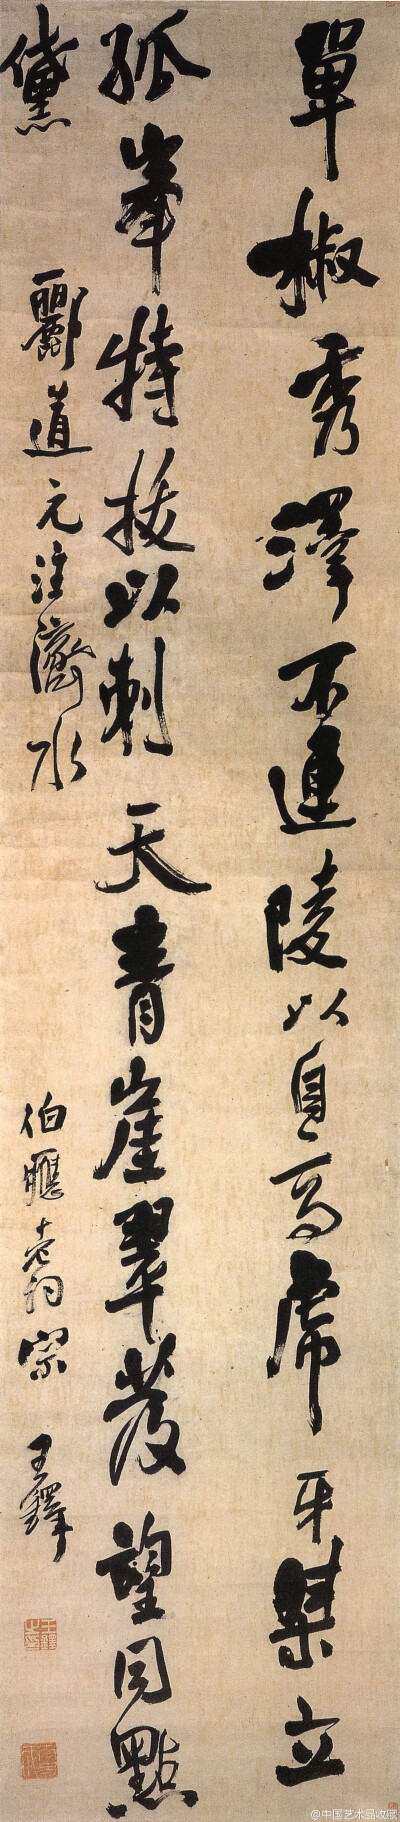 單椒秀澤不連陵以自高虎牙桀立
孤峯特拔以刺天青崖翠發望同點
黛
酈道元注濟水
伯應老詞宗 王鐸
@中国艺术品收藏